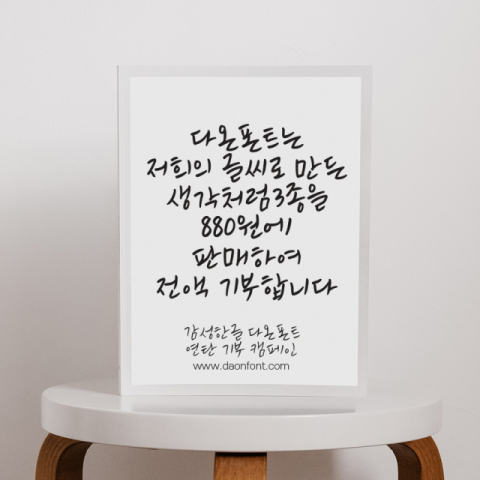 다온폰트는
저희의 글씨로 만든
생각처럼3종을
880원에
판매하여
전액 기부합니다
감성한글 다온폰트
연탄 기부 캠페인
www.daonfont.com